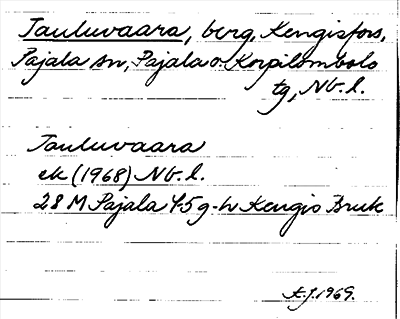 Tauluvaara, berg, Kengisfors,
Pajala sn, Pajala o. Korpilombolo
tg, Nb. l.
Tauluvaara
ek (1968) Nb. l.
28 M Pajala f-5 g-h Kengis Bruk
1969.